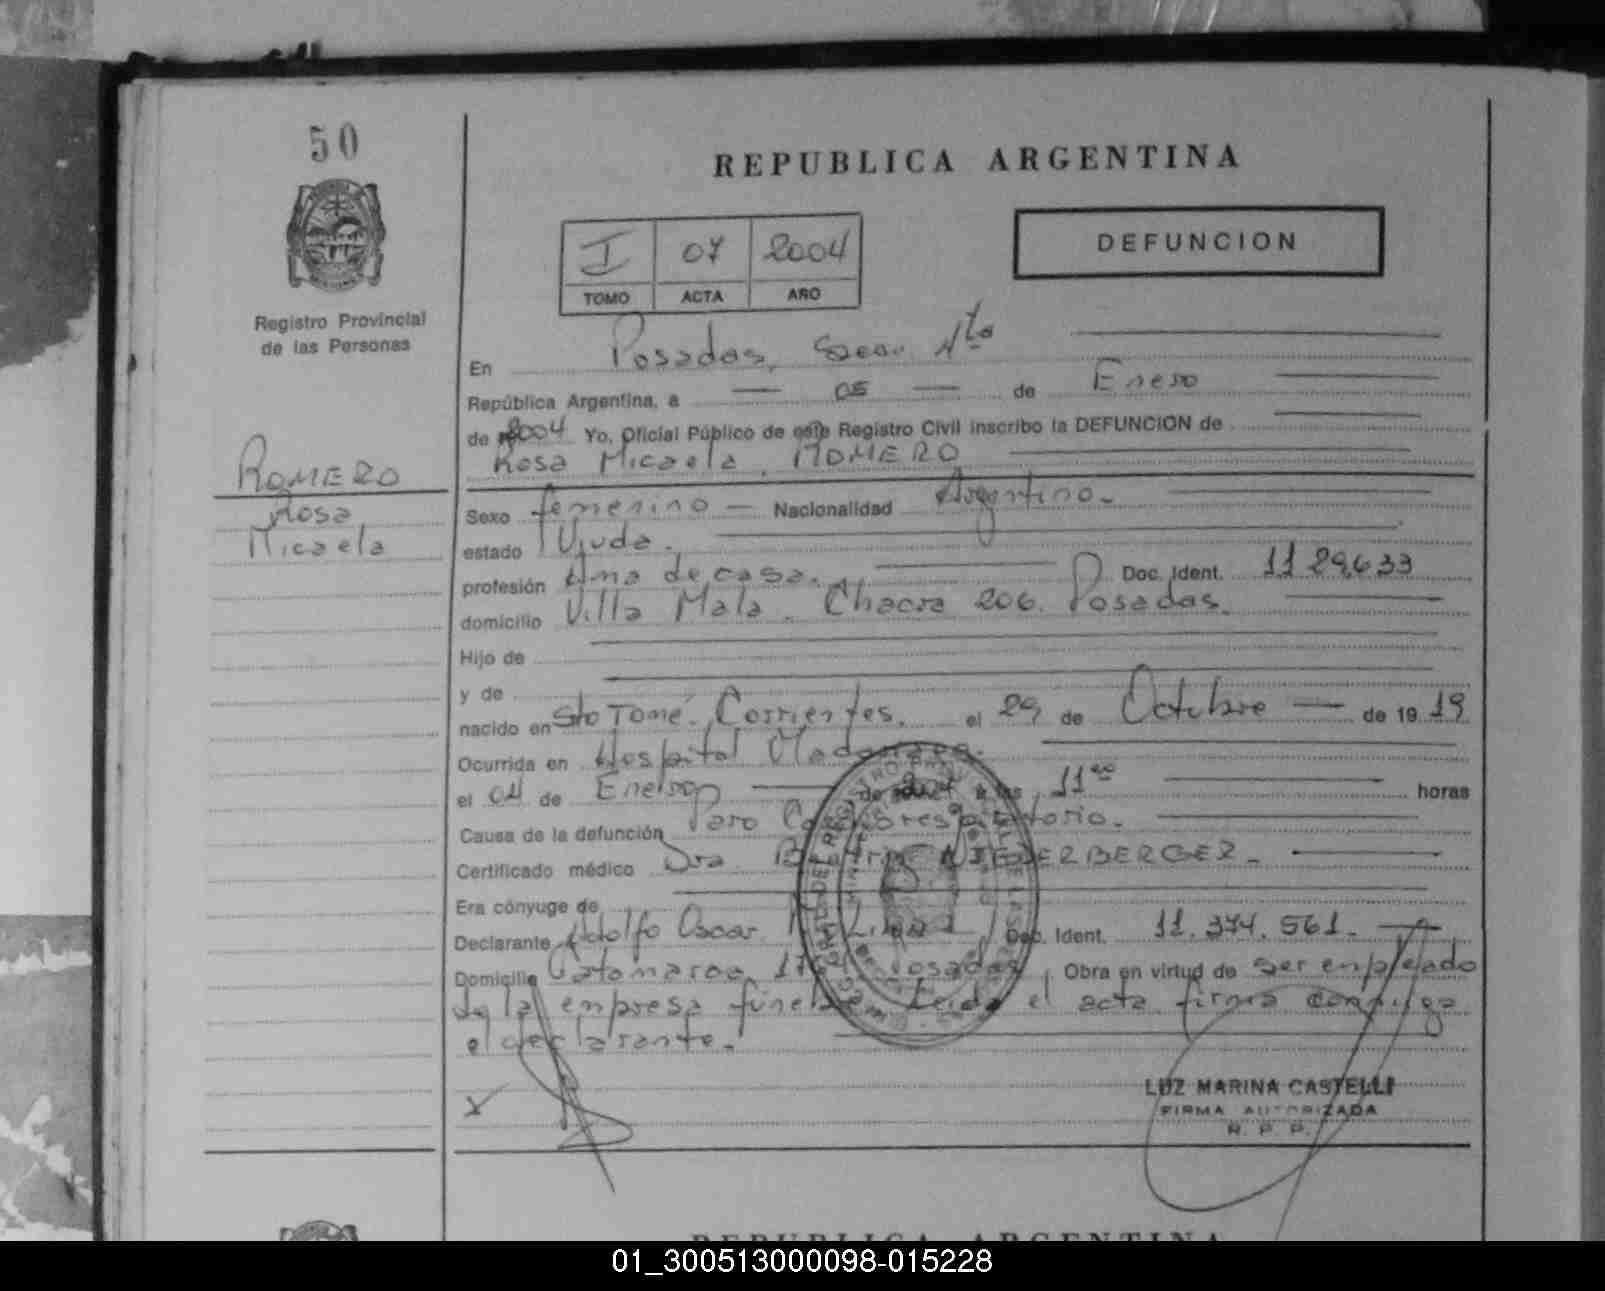 50
REPUBLICA ARGENTINA
I 07 2004
TOMO ACTA AÑO
DEFUNCION
Registro Provincial
de las Personas
En Posadas, Secc. 4ta
República Argentina, a 05 de Enero
de 2004 Yo, Oficial Público de este Registro Civil inscribo la DEFUNCION de
Rosa Micaela ROMERO
ROMERO
Rosa
Micaela
Sexo femenino Nacionalidad Argentina.
estado Viuda.
profesión Ama de casa. Doc. Ident. 1129633
domicilio Villa Mala. Chacra 206. Posadas.
Hijo de
y de
nacido en Sto Tomé. Corrientes. el 29 de Octubre de 19 19
Ocurrida en Hospital Madariaga.
el 04 de Enero de 2004 a las 11 00 horas
Causa de la defunción Paro Cardiorespiratorio.
Certificado médico Dra. NIEDERBERGER.
Era cónyuge de
Declarante Adolfo Oscar Doc. Ident. 11.374.561.
Domicilio Catamarca Posadas, Obra en virtud de ser empleado
de la empresa fúnebre. Leída el acta firma conmigo
el declarante.
X
LUZ MARINA CASTELLI
FIRMA AUTORIZADA
R. P. P.
REPUBLICA ARGENTINA
01_300513000098-015228